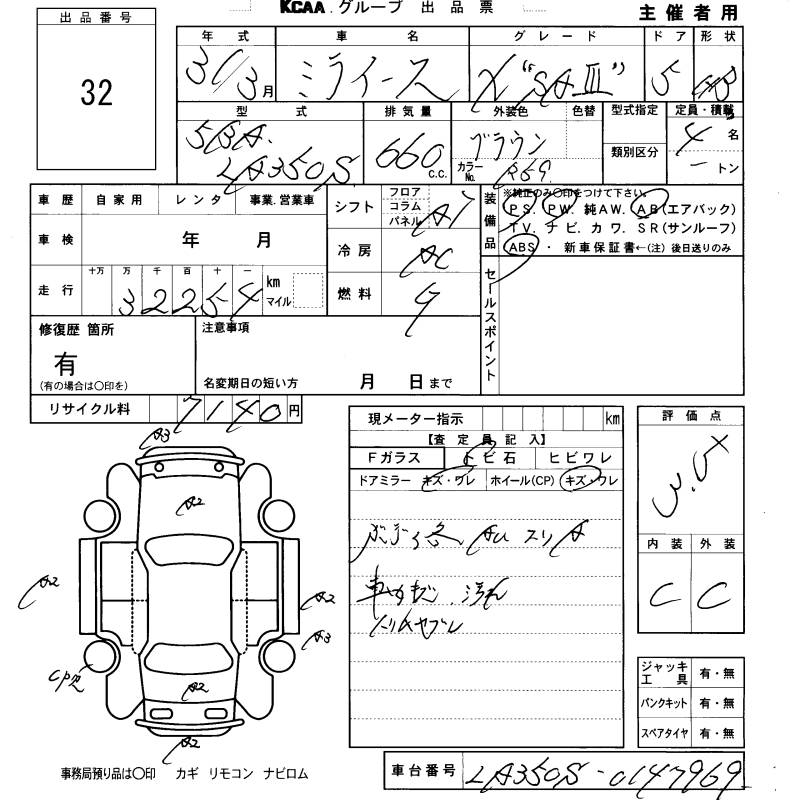 KCAA グループ 出品票
主催者用
出品番号
32
年式 車名 グレード ドア 形状
31/3月 ミライース X "SAⅢ" 5 HB
型式 排気量 外装色 色替 型式指定 定員・積載
5BA-
LA350S 660 c.c. ブラウン 類別区分 4名
カラーNo. R59 ートン
車歴 自家用 レンタ 事業・営業車
シフト フロア コラム パネル AT
装備品 ※純正のみ〇印をつけて下さい。
PS. PW. 純AW. AB(エアバック)
TV. ナビ. カワ. SR(サンルーフ)
ABS ・ 新車保証書←(注) 後日送りのみ
車検 年 月
冷房 AC
走行 十万 万 千 百 十 一
32254 km マイル
燃料 G
セールスポイント
修復歴 箇所 注意事項
有
(有の場合は〇印を) 名変期日の短い方 月 日まで
リサイクル料 7140円
現メーター指示 km
【査定員記入】
Fガラス トビ石 ヒビワレ
ドアミラー キズ・ワレ ホイール(CP) キズ・ワレ
評価点
内装 外装
C C
A3
A2
A2
A2
A3
A2
A2
ボディ各 AU スリA
ヤブレ
ジャッキ工具 有・無
パンクキット 有・無
スペアタイヤ 有・無
事務局預り品は〇印 カギ リモコン ナビロム
車台番号 LA350S-0147969